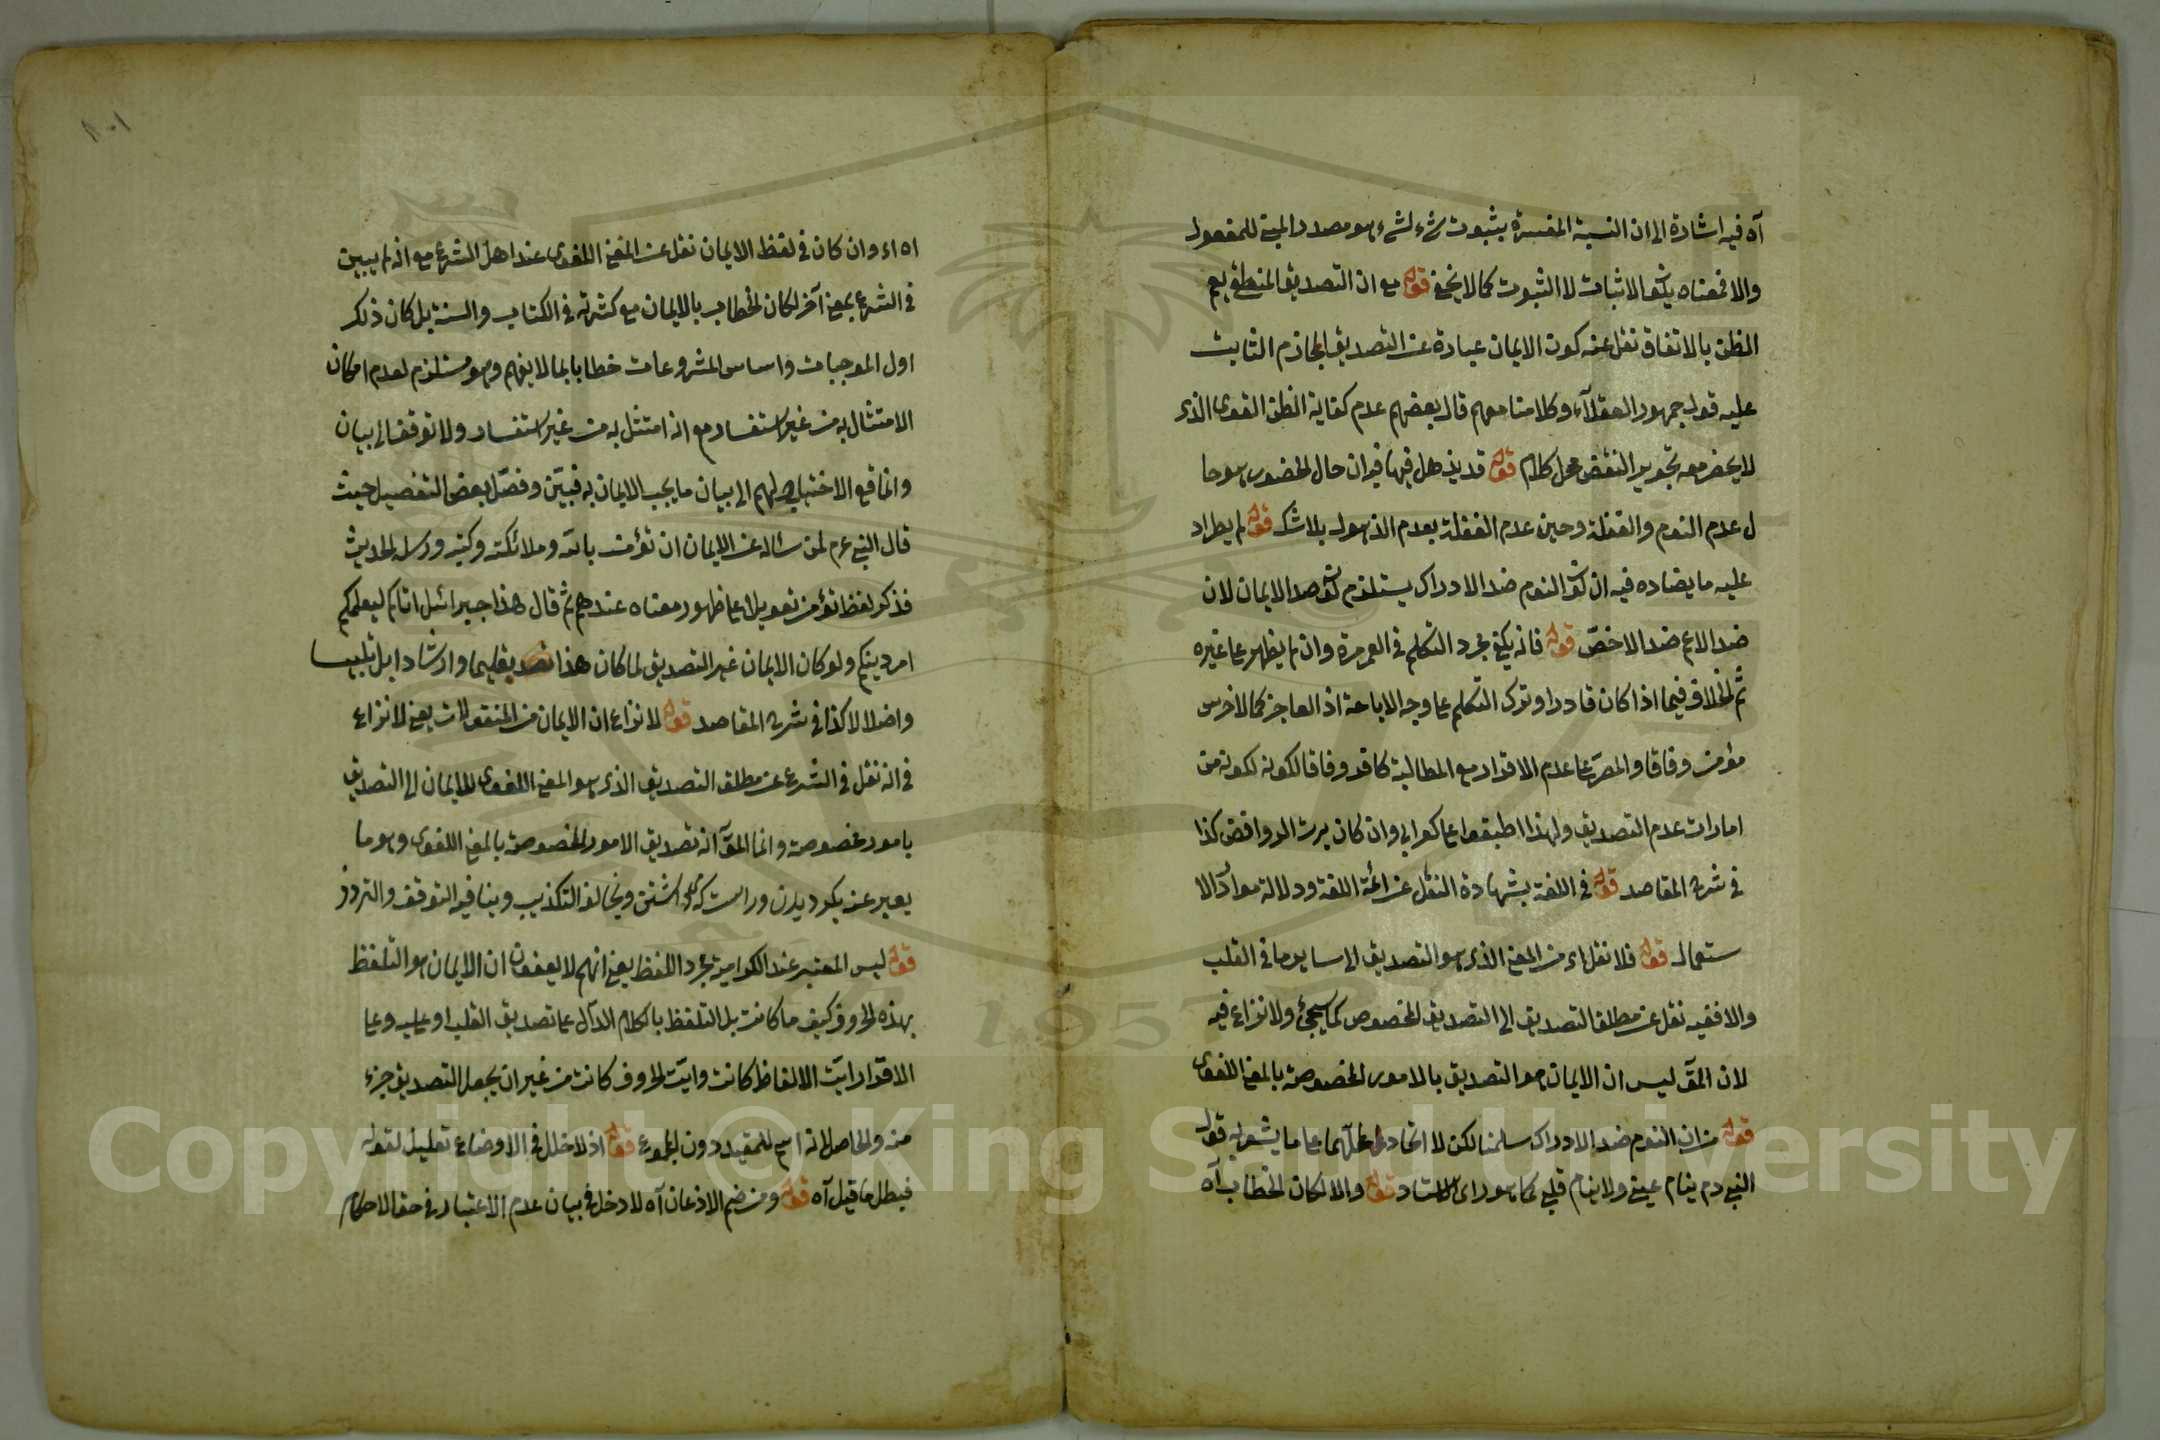 آه فيه اشارة الى ان النسبة المفسرة بثبوت شيء لشيء هو مصدر المبنى للمفعول
والا فمعناه يكون الاثبات لا الثبوت كما لا يخفى قوله مع ان التصديق المنطقى يعم
الظن بالاتفاق نقل عنه كون الايمان عبارة عن التصديق الجازم الثابت
عليه قول جمهور العقلاء وكلامنا معهم قال بعضهم عدم كفاية الظن القوى الذى
لا يخطر معه تجويز النقض محل كلام قوله قد يذهل فيها فيه ان حال الحضور هو حا
ل عدم النوم والغفلة وحين عدم الغفلة يعدم الذهول بلا شك قوله لم يطراء
عليه ما يضاده فيه ان كون النوم ضد الادراك يستلزم كونه ضد الايمان لان
ضد الاعم ضد الاخصّ قوله فانه يكفى مجرد التكلم فى العمر مرة وان لم يظهر على غيره
ثم الخلاف فيما اذا كان قادرا وترك التكلم على وجه الاباحة اذ العاجز كالاخرس
مؤمن وفاقا والمصرّ على عدم الاقرار مع المطالبة كافر وفاقا لكونه لكونه من
امارات عدم التصديق ولهذا اطبقوا على كفر ابى وان كان يرث الروافض كذا
فى شرح المقاصد قوله فى اللغة بشهادة النقل عن ائمة اللغة ودلالة موارد الا
ستعمال قوله فلا نقل اى من المعنى الذى هو التصديق الى ساير ما فى القلب
والا ففيه نقل عن مطلق التصديق الى التصديق المخصوص كما سيجئ ولا نزاع فيه
لان المقـ ليس ان الايمان هو التصديق بالامور المخصوصة بالمعنى اللغوى
قوله من ان النوم ضد الادراك سلمنا لكن لا اتحاد محلهما على ما يشعر به قول
النبى عم ينام عينى ولا ينام قلبى كما هو راى الاستاد قوله والا لكان الخطاب آه
اه اى وان كان فى لفظ الايمان نقل عن المعنى اللغوى عند اهل الشرع مع انه لم يبين
فى الشرع بمعنى آخر لكان الخطاب بالايمان مع كثرته فى الكتاب والسنة بل كان ذلك
اول الموجبات واساس المشروعات خطابا بما لا يفهم وهو مستلزم لعدم امكان
الامتثال به من غير استفسار مع انه امتثل به من غير استفسار ولا توقف الى بيان
وانما وقع الاحتياج لهم الى بيان ما يجب الايمان به فبيّن وفصّل بعض التفصيل حيث
قال النبى عم لمن سئاله عن الايمان ان تؤمن بالله وملائكته وكتبه ورسله الحديث
فذكر لفظ تؤمن تعويلا على ظهور معناه عندهم ثم قال هذا جبرائيل اتاكم ليعلمكم
امر دينكم ولو كان الايمان غير التصديق لما كان هذا تعليما وارشادا بل تلبيسا
واضلالا كذا فى شرح المقاصد قوله لا نزاع ان الايمان من المنقولات يعنى لا نزاع
فى انه نقل فى الشرع عن مطلق التصديق الذى هو المعنى اللغوى للايمان الى التصديق
بامور مخصوصة وانما المقـ انه تصديق الامور المخصوصة بالمعنى اللغوى وهو ما
يعبر عنه بكرديدن وراست كو داشتن ويخالف التكذيب وينافيه التوقف والتردد
قوله ليس المعتبر عند الكرامية مجرد اللفظ يعنى انهم لا يعنون ان الايمان هو التلفظ
بهذه الحروف كيف ما كانت بل التلفظ بالكلام الدالّ على تصديق القلب او عليه وعلى
الاقرار ايّت الالفاظ كانت وايّت الحروف كانت من غير ان يجعل التصديق جزء
منه والحاصل انه اسم للمقيد دون المجموع قوله اذ لا خلل فى الاوضاع تعليل لقوله
فيبطل ما قيل آه قوله ومن ضم الاذعان آه لا دخل فى بيان عدم الاعتبار فى حق الاحكام
Copyright © King Saud University
1957